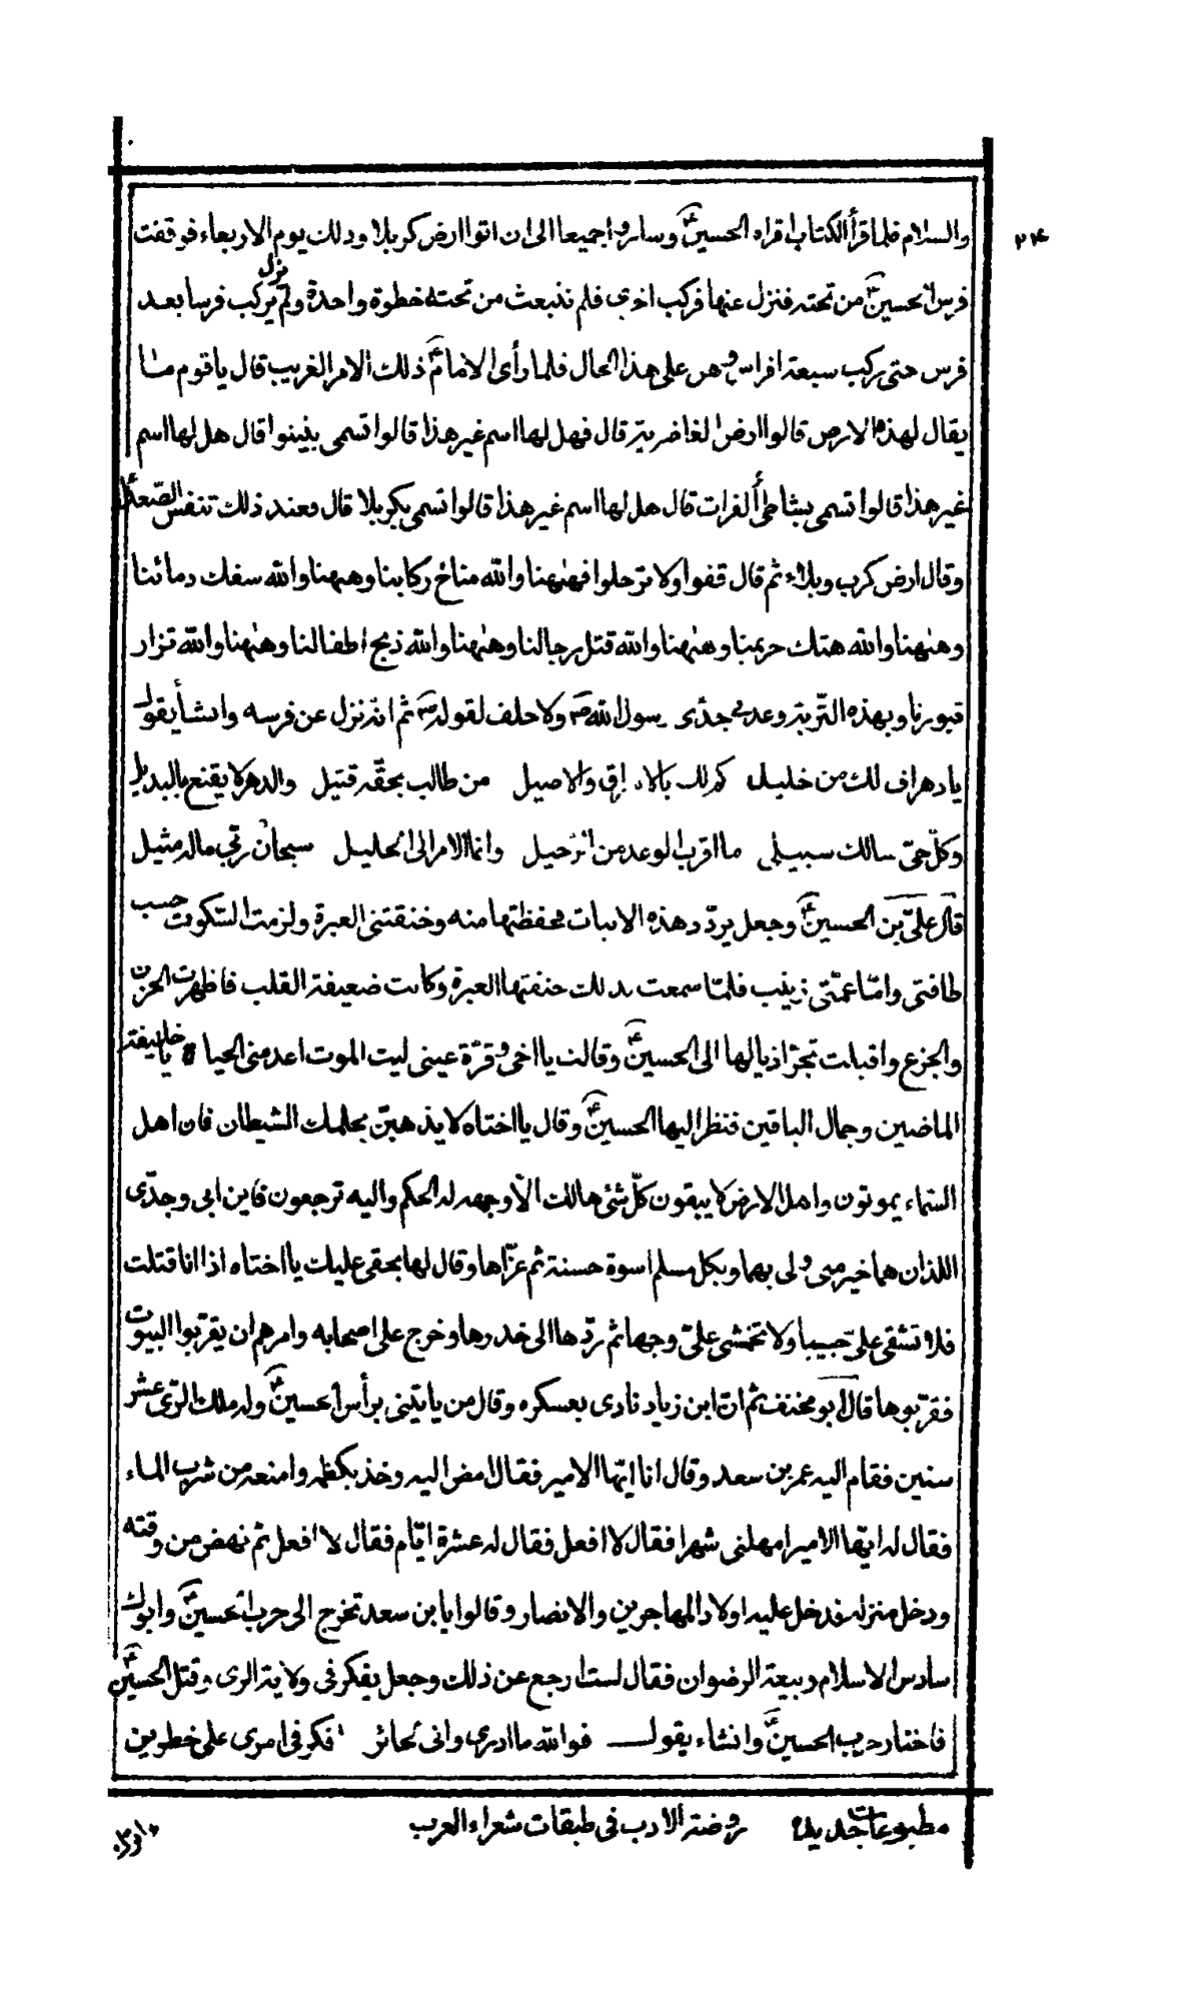 ٢٤
والسلام فلما قرأ الكتاب اقراه الحسينؑ وساروا جميعا الى ان اتوا ارض كربلا وذلك يوم الاربعاء فوقفت
فرس الحسينؑ من تحته فنزل عنها فركب اخرى فلم تنبعث من تحته خطوة واحدة ولم يزل يركب فرسا بعد
فرس حتى ركب سبعة افراس وهن على هذا الحال فلما رأى الامامؑ ذلك الامر الغريب قال يا قوم ما
يقال لهذه الارض قالوا ارض الغاضرية قال فهل لها اسم غير هذا قالوا تسمى بنينوا قال هل لها اسم
غير هذا قالوا تسمى بشاطئ الفرات قال هل لها اسم غير هذا قالوا تسمى بكربلا قال فعند ذلك تنفس الصعداء
وقال ارض كرب وبلاء ثم قال قفوا ولا ترحلوا فههنا والله مناخ ركابنا وههنا والله سفك دمائنا
وههنا والله هتك حريمنا وههنا والله قتل رجالنا وههنا والله ذبح اطفالنا وههنا والله تزار
قبورنا وبهذه التربة وعدنى جدّى رسول اللهؐ ولا خلف لقولهؐ ثم انه نزل عن فرسه وانشأ يقول
يا دهر اف لك من خليل كم لك بالاشراق والاصيل من طالب بحقّه قتيل والدهر لا يقنع بالبديل
وكلّ حىّ سالك سبيلى ما اقرب الوعد من الرحيل وانما الامر الى الجليل سبحان ربى ماله مثيل
قال علىّ بن الحسينؑ وجعل يردّد هذه الابيات فحفظتها منه وخنقتنى العبرة ولزمت السكوت حسب
طاقتى وامّا عمّتى زينب فلمّا سمعت بذلك خنقتها العبرة وكانت ضعيفة القلب فاظهرت الحزن
والجزع واقبلت تجرّ اذيالها الى الحسينؑ وقالت يا اخى وقرّة عينى ليت الموت اعدمنى الحياة يا خليفة
الماضين وجمال الباقين فنظر اليها الحسينؑ وقال يا اختاه لا يذهبنّ بحلمك الشيطان فان اهل
السّماء يموتون واهل الارض لا يبقون كلّ شئ هالك الّا وجهه له الحكم واليه ترجعون فاين ابى وجدّى
اللذان هما خير منى ولى بهما وبكل مسلم اسوة حسنة ثم عزّاها وقال لها بحقى عليك يا اختاه اذا انا قتلت
فلا تشقى علىّ جيبا ولا تخمشى علىّ وجها ثم ردّها الى خدرها وخرج على اصحابه وامرهم ان يقربوا البيوت
فقربوها قال ابو مخنف ثم انّ ابن زياد نادى بعسكره وقال من ياتينى برأس الحسينؑ وله ملك الرّى عشر
سنين فقام اليه عمر بن سعد وقال انا ايّها الامير فقال امض اليه وخذ بكظمه وامنعه من شرب الماء
فقال له ايّها الامير امهلنى شهرا فقال لا افعل فقال له عشرة ايّام فقال لا افعل ثم نهض من وقته
ودخل منزله فدخل عليه اولاد المهاجرين والانصار وقالوا يا بن سعد تخرج الى حرب الحسينؑ وابوك
سادس الاسلام وبيعة الرضوان فقال لست ارجع عن ذلك وجعل يفكر فى ولاية الرى وقتل الحسينؑ
فاختار حرب الحسينؑ وانشاء يقول فوالله ما ادرى وانى لحائر افكر فى امرى على خطرين
مطبوعات جديدة روضة الادب فى طبقات شعراء العرب